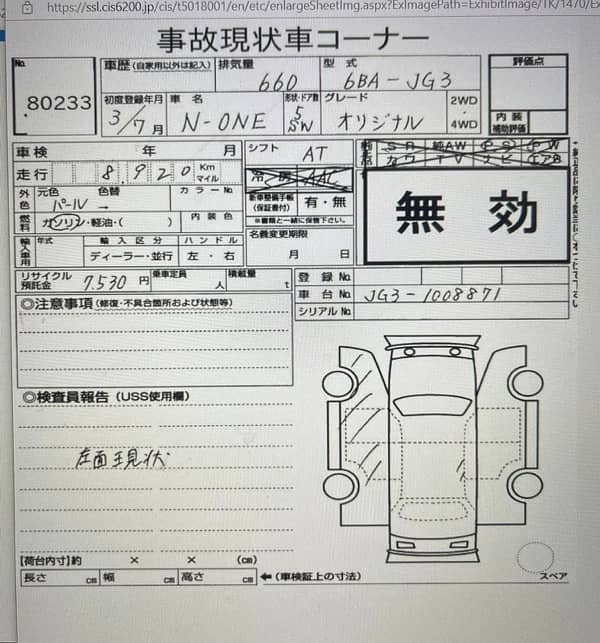 https://ssl.cis6200.jp/cis/t5018001/en/etc/enlargeSheetImg.aspx?ExImagePath=ExhibitImage/TK/1470/Ex
事故現状車コーナー
No.
80233
車歴(自家用以外は記入)
排気量
660
型式
6BA-JG3
評価点
初度登録年月
3/7月
車名
N-ONE
形状・ドア数
5
SW
グレード
オリジナル
2WD
4WD
内装
補助評価
車検 年 月
シフト
AT
走行 8,920 Km
マイル
冷房 AAC
SR 純AW PS PW
カワ TV ナビ エアB
外色
元色 色替
パール →
カラーNo.
新車整備手帳
(保証書付)
有・無
※書類と一緒に保管下さい。
無効
燃料
ガソリン・軽油・( )
内装色
名義変更期限
月 日
輸入車用
年式
輸入区分
ハンドル
ディーラー・並行
左・右
リサイクル
預託金
7.530円
乗車定員
人
積載量
t
登録No.
車台No.
JG3-1008871
シリアルNo.
◎注意事項(修復・不具合箇所および状態等)
◎検査員報告(USS使用欄)
左面現状
【荷台内寸】約 × × (cm)
長さ cm 幅 cm 高さ cm ←(車検証上の寸法)
スペア